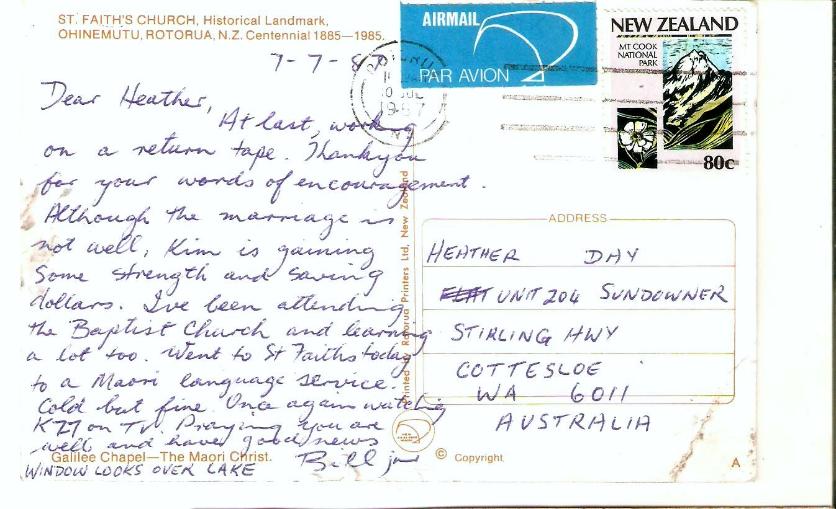 ST. FAITH'S CHURCH, Historical Landmark,
OHINEMUTU, ROTORUA, N.Z. Centennial 1885—1985.
7-7-87
Dear Heather,
At last, working
on a return tape. Thankyou
for your words of encouragement.
Although the marriage is
not well, Kim is gaining
some strength and saving
dollars. I've been attending
the Baptist Church and learning
a lot too. Went to St Faiths today
to a Maori language service.
Cold but fine. Once again watching
on TV. Praying you are
well and have good news
Bill
Galilee Chapel—The Maori Christ.
WINDOW LOOKS OVER LAKE
AIRMAIL
PAR AVION
1987
NEW ZEALAND
MT COOK
NATIONAL
PARK
80c
Printed by Rotorua Printers Ltd, New Zealand
ADDRESS
HEATHER DAY
FLAT UNIT 204 SUNDOWNER
STIRLING HWY
COTTESLOE
WA 6011
AUSTRALIA
© Copyright
A